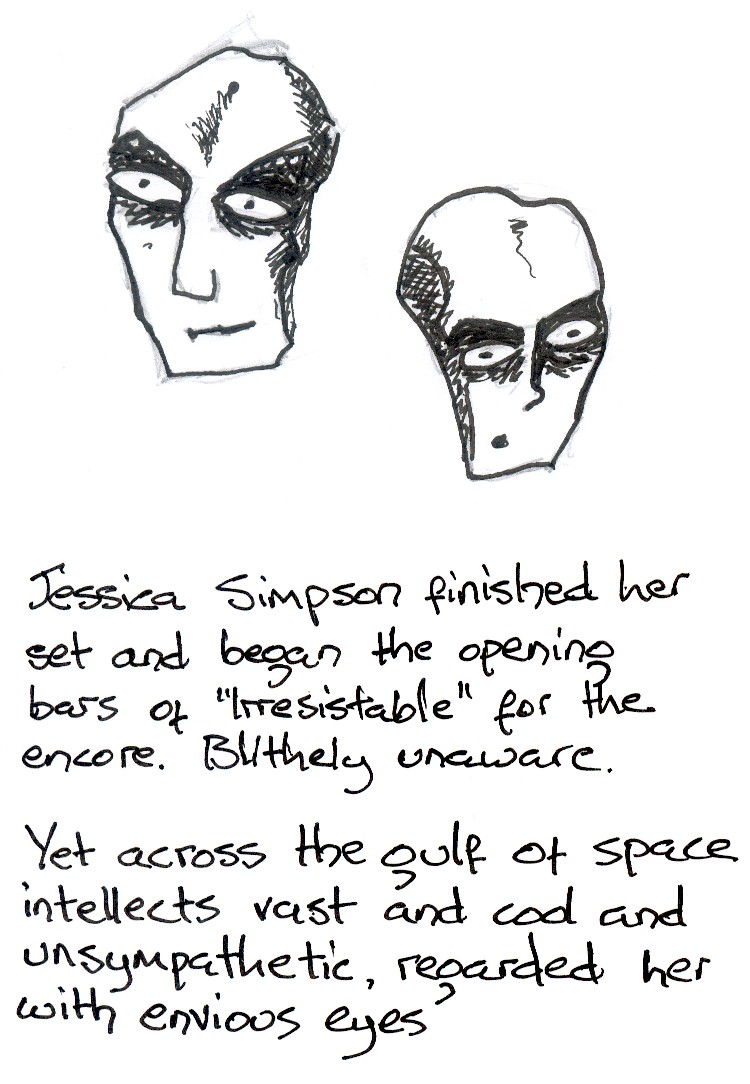 Jessica Simpson finished her
set and began the opening
bars of "Irresistable" for the
encore. Blithely unaware.
Yet across the gulf of space
intellects vast and cool and
unsympathetic, regarded her
with envious eyes